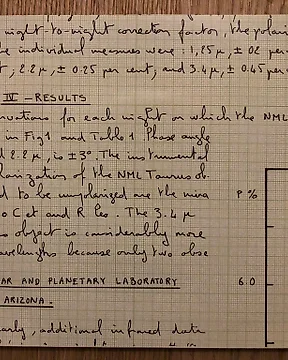 night-to-night correction factor, the polari
e individual measures were : 1,25 μ, ± 02 per
, 2.2 μ, ± 0.25 per cent, and 3.4 μ, ± 0.45 per c
IV - RESULTS
rvations for each night on which the NML
in Fig 1 and Table 1. Phase angle
d 2.2 μ, is ± 3°. The instrumental
larization of the NML Taurus ob-
d to be unpolarized are the mira
o Cet and R Leo. The 3.4 μ
s object is considerably more
avelengths because only two obse
P %
AR AND PLANETARY LABORATORY
6.0
ARIZONA.
arly, additional infrared data